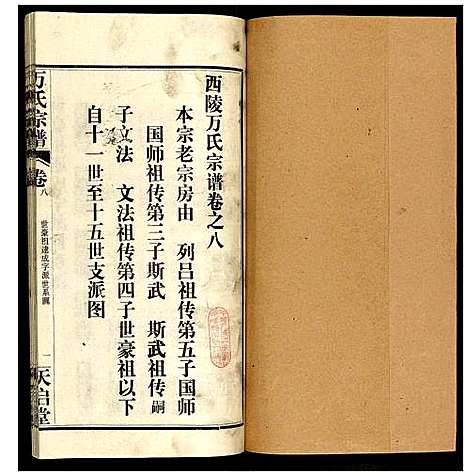 西陵万氏宗谱卷之八
本宗老宗房由　列吕祖传第五子国师
国师祖传第三子斯武　斯武祖传嗣
子文法　文法祖传第四子世豪祖以下
自十一世至十五世支派图
万氏宗谱
卷八
世豪祖达成字派世系图
一
天启堂